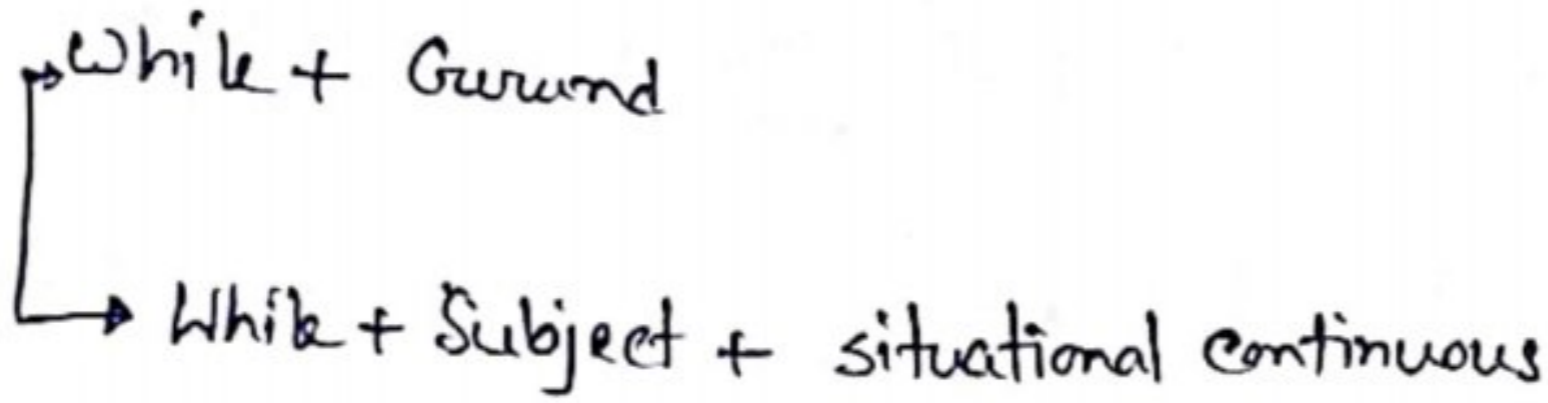 While + Gurund
While + Subject + situational continuous